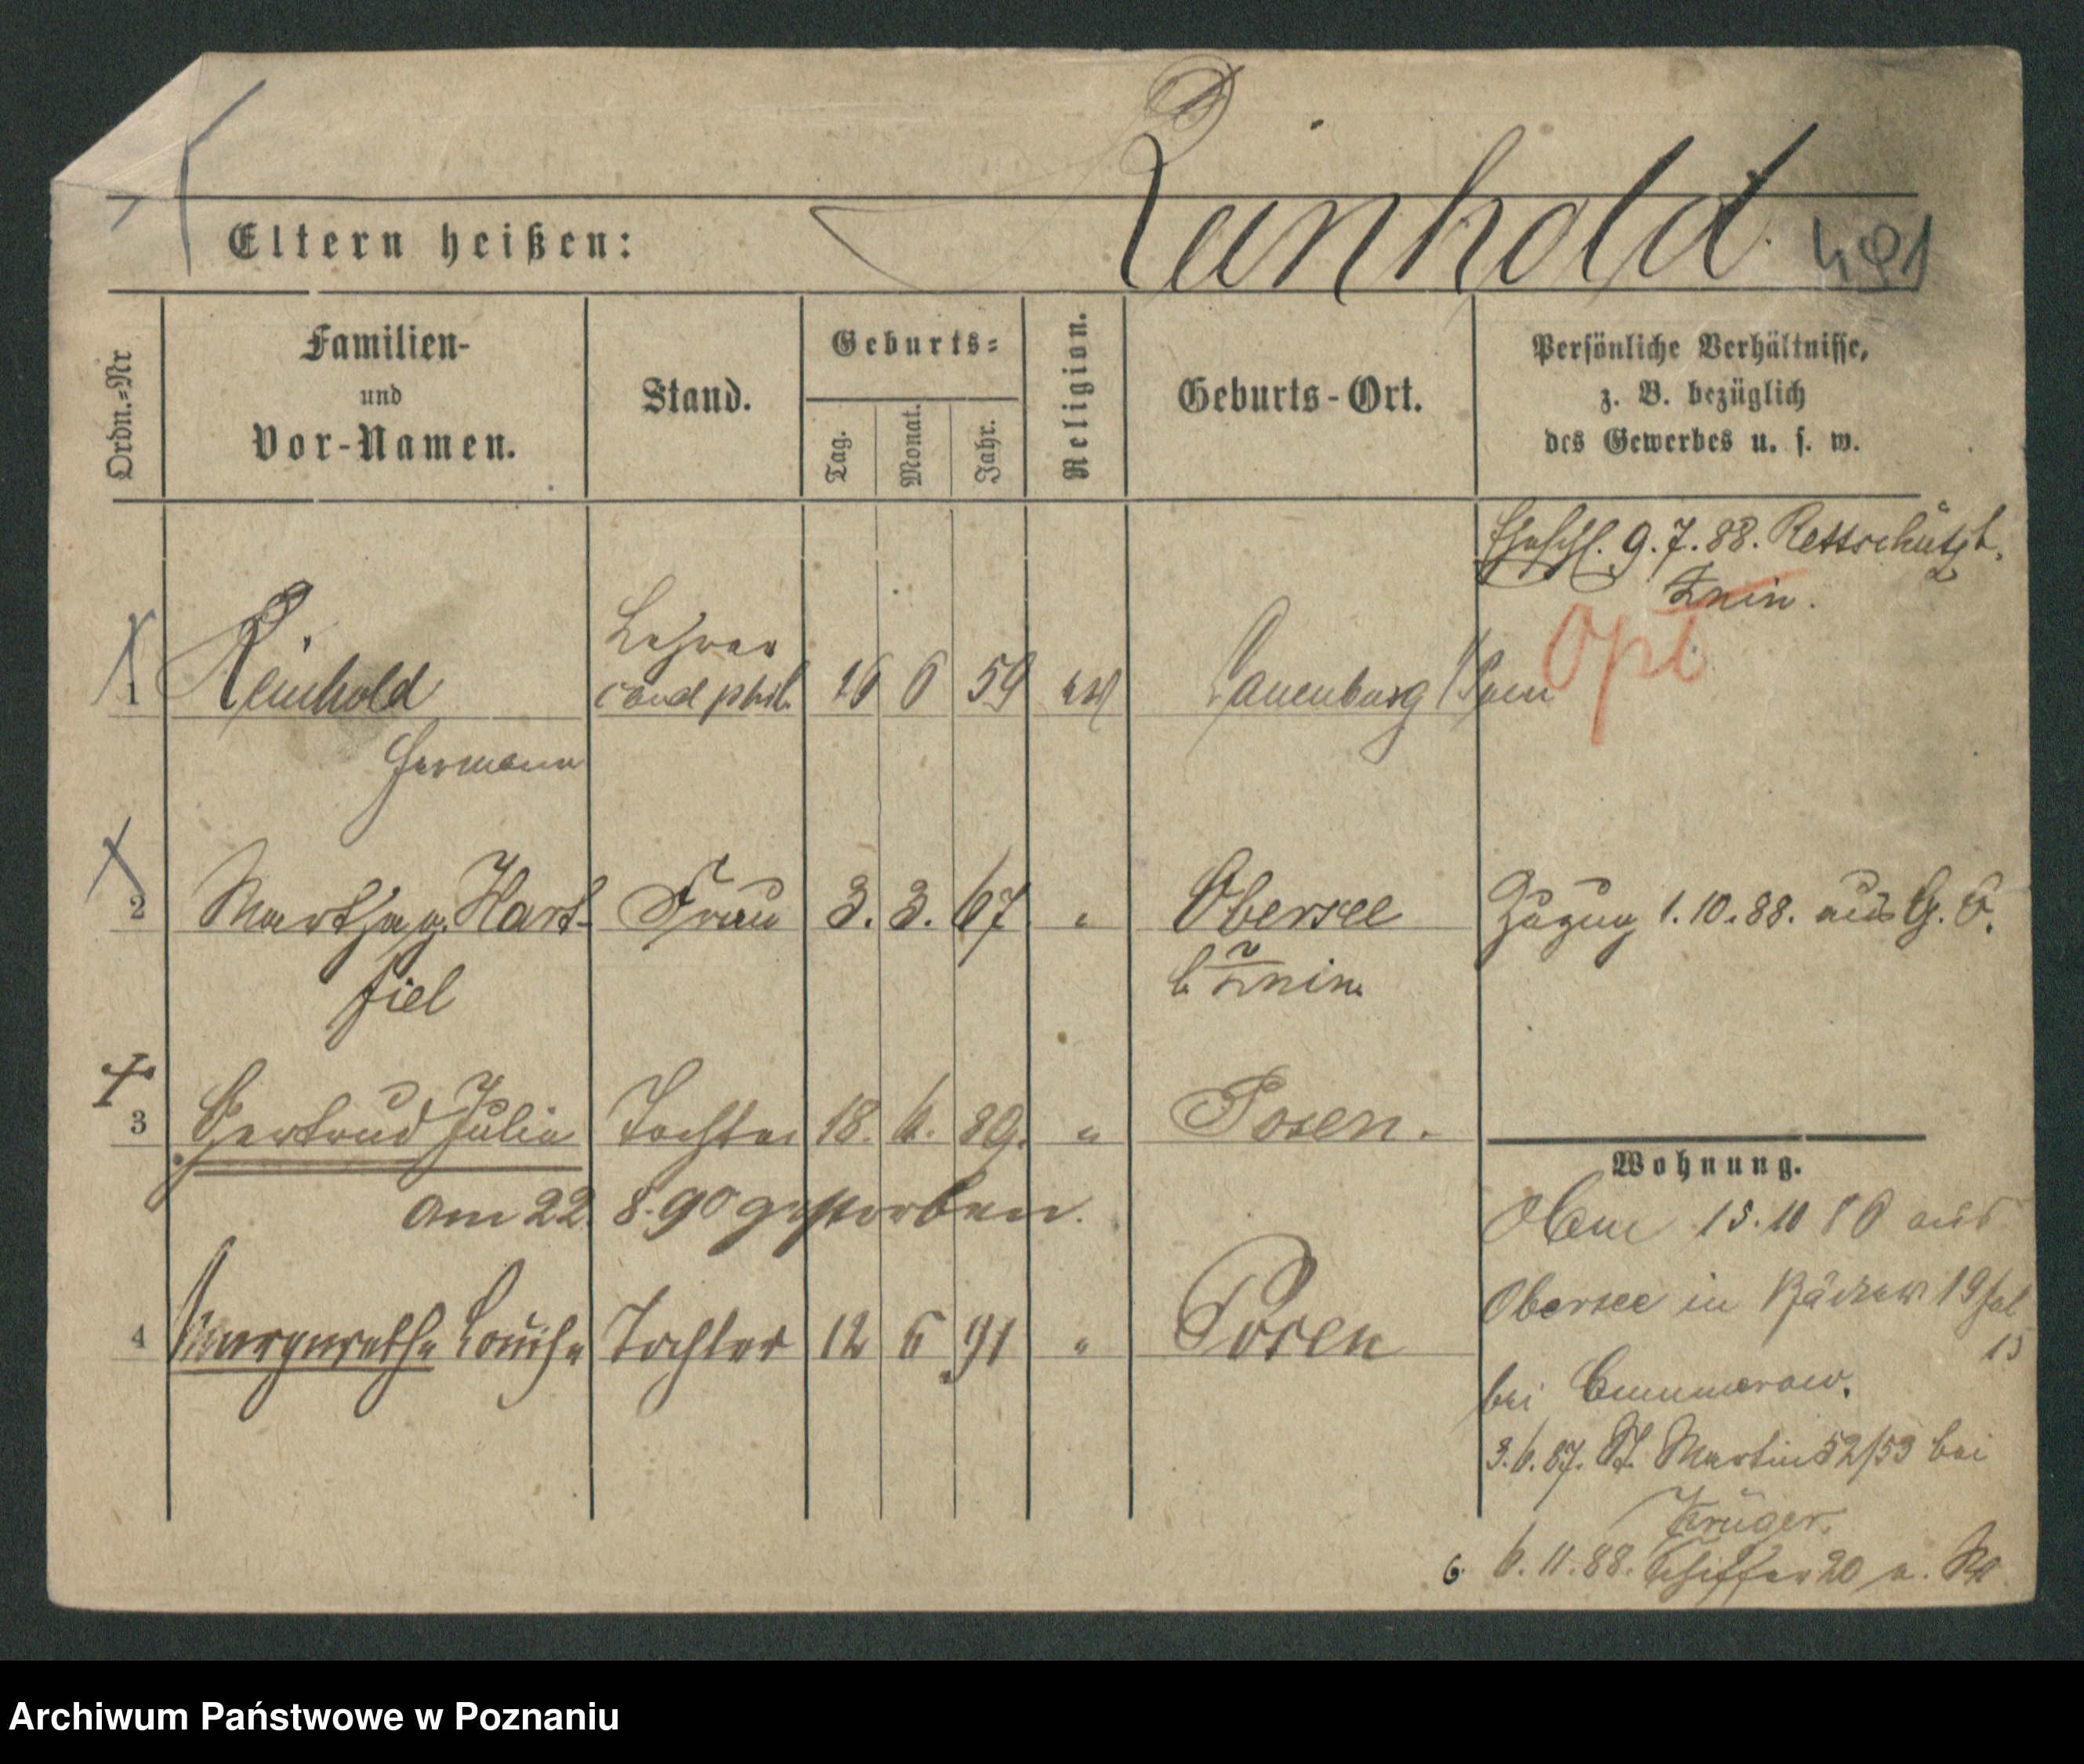 Reinhold. 491
Eltern heißen:
Ordn.=Nr
Familien-
und
Vor-Namen.
Stand.
Geburts=
Tag.
Monat.
Jahr.
Religion.
Geburts-Ort.
Persönliche Verhältnisse,
z. B. bezüglich
des Gewerbes u. s. w.
Eheschl. 9.7.88.
Znin.
Opl
1 Reinhold Lehrer cand phil. 16 6 59 Lauenburg
Hermann
2 Martha g. Hart- Frau 3. 3. 67. " Obersee Zuzug 1.10.88. aus G. O.
fiel b. Znin.
3 Gertrud Julia Tochter 18. 6. 89. " Posen.
am 22. 8. 90 gestorben.
4 Margarethe Louise Tochter 12 6 91 " Posen
Wohnung.
15.10 86 aus
Obersee in
15
bei Cummerow.
3.6.87. St. Martin 52/53 bei
Krüger.
6. 6.11.88. 20
Archiwum Państwowe w Poznaniu